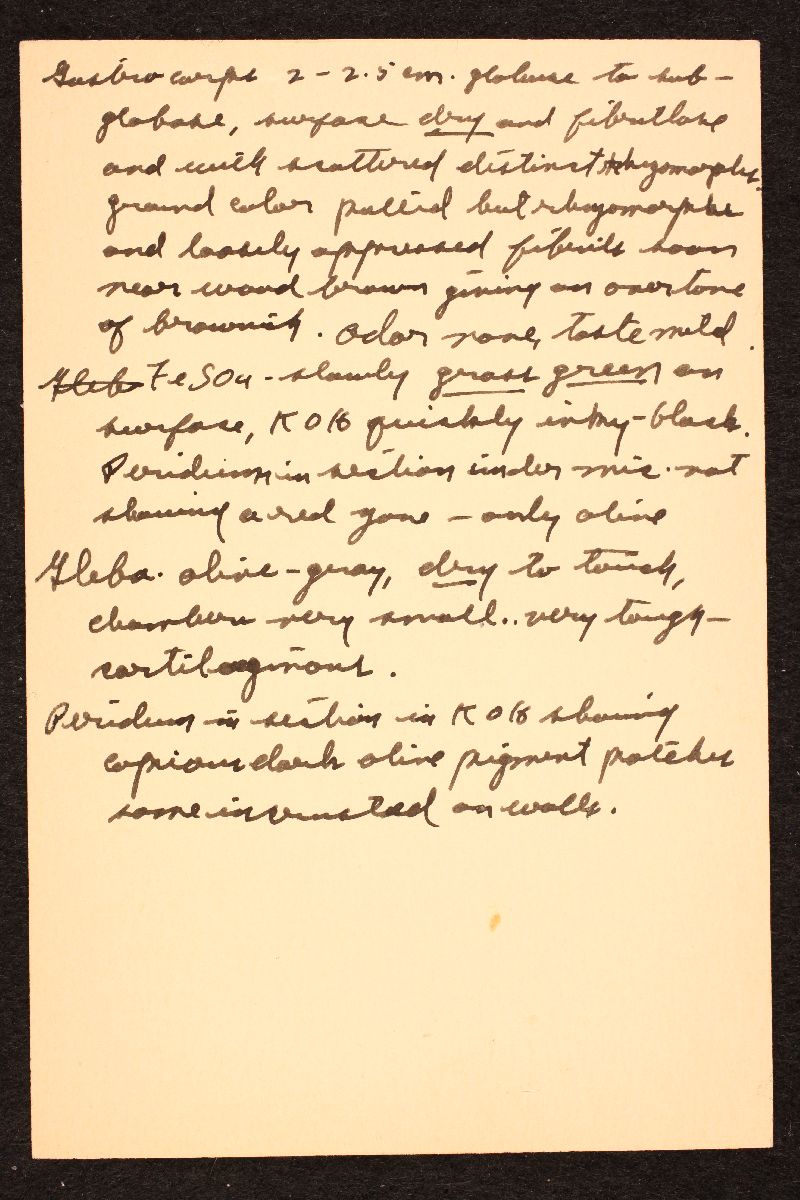 Gastrocarps 2-2.5 cm. globose to sub-
globose, surface dry and fibrillose
and with scattered distinct rhizomorphs.
ground color pallid but rhizomorphs
and loosely appressed fibrils soon
near wood brown giving an overtone
of brownish. Odor none, taste mild.
Gleba FeSO4 - slowly grass green on
surface, KOH quickly inky-black.
Peridium in section under mic. not
showing a red zone - only olive
Gleba. olive-gray, dry to touch,
chambers very small.. very tough-
cartilaginous.
Peridium in section in KOH showing
copious dark olive pigment patches
some incrusted on walls.